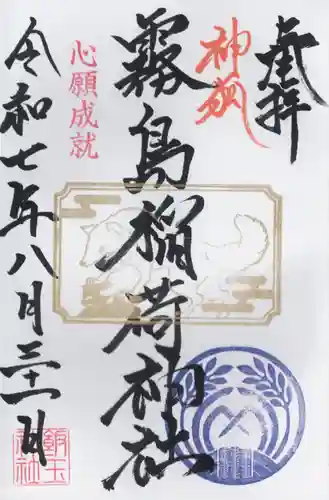 奉拝
神狐
霧島稲荷神社
心願成就
令和七年八月三十一日
飯玉神社